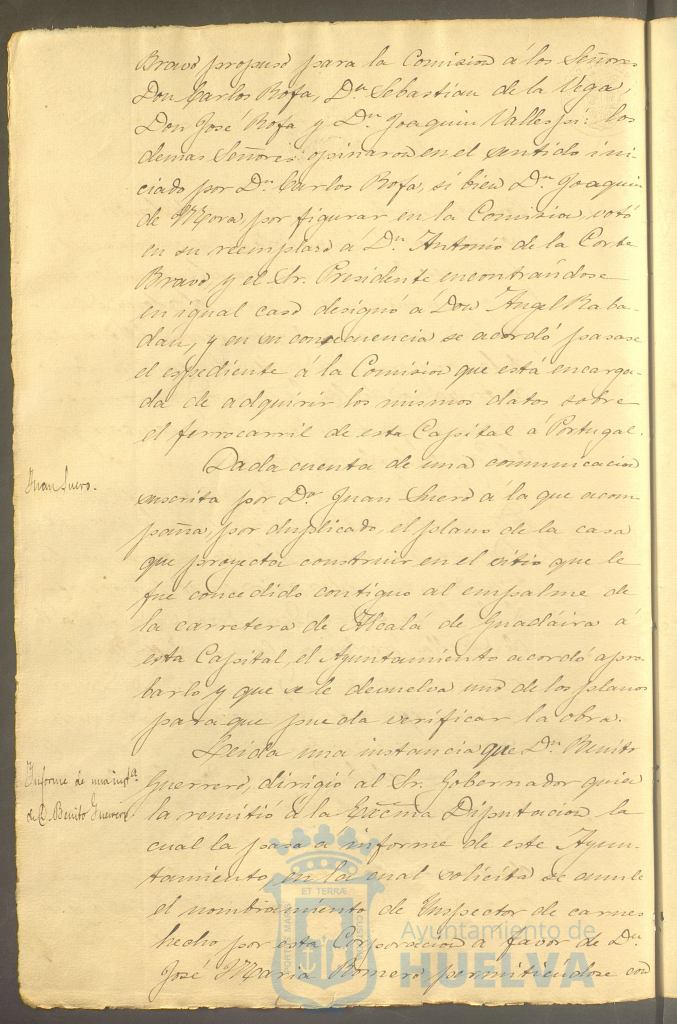 Bravo propuso para la Comision á los Señores
Don Carlos Rofa, Dn. Sebastian de la Vega,
Don José Rofa y Dn. Joaquin Vallespi: los
demas Señores opinaron en el sentido ini-
ciado por Dn. Carlos Rofa, si bien Dn. Joaquin
de Mora por figurar en la Comision, votó
en su reemplazo á Dn. Antonio de la Corte
Bravo y el Sr. Presidente encontrándose
en igual caso designó á Don Ángel Raba-
dan, y en su consecuencia se acordó pasase
el espediente á la Comision que está encarga-
da de adquirir los mismos datos sobre
el ferrocarril de esta Capital á Portugal.
Juan Suero.
Dada cuenta de una comunicacion
suscrita por Dn. Juan Suero á la que acom-
paña, por duplicado, el plano de la casa
que proyecta construir en el sitio que le
fué concedido contiguo al empalme de
la carretera de Alcalá de Guadáira á
esta Capital, el Ayuntamiento acordó apro-
barlo y que se le devuelva uno de los planos
para que pueda verificar la obra.
Informe de una insta.
de D. Benito Guerrero
Leida una instancia que Dn. Benito
Guerrero, dirigió al Sr. Gobernador quien
la remitió á la Excma Diputacion, la
cual la pasa á informe de este Ayun-
tamiento en la cual solicita se anule
el nombramiento de Inspector de carnes
hecho por esta Corporacion á favor de Dn.
José Maria Romero permitiéndose con
ET TERRÆ
PORTUS MARIS
CUSTODIA
Ayuntamiento de
HUELVA